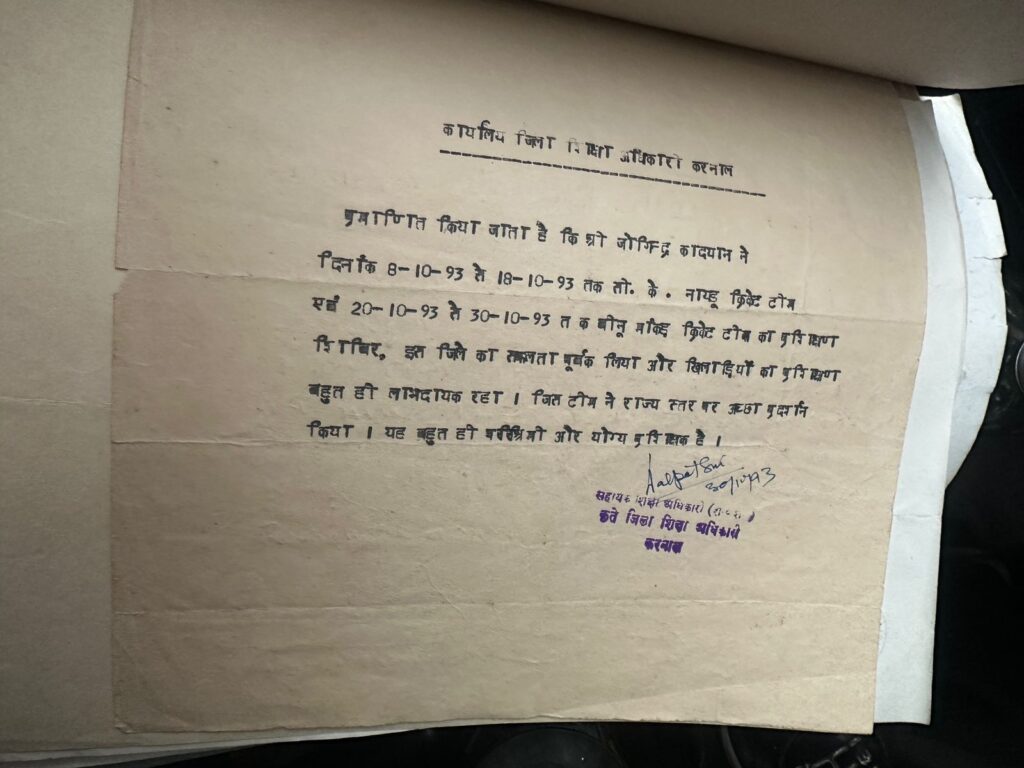 कार्यालय जिला शिक्षा अधिकारी करनाल
प्रमाणित किया जाता है कि श्री जोगिन्द्र कादयान ने
दिनांक 8-10-93 से 18-10-93 तक सी. के. नायडू क्रिकेट टीम
एवं 20-10-93 से 30-10-93 तक वीनू मांकड क्रिकेट टीम का प्रशिक्षण
शिविर, इस जिले का सफलता पूर्वक लिया और खिलाड़ियों का प्रशिक्षण
बहुत ही लाभदायक रहा । जिस टीम ने राज्य स्तर पर अच्छा प्रदर्शन
किया । यह बहुत ही परिश्रमी और योग्य प्रशिक्षक है ।
30/10/93
सहायक शिक्षा अधिकारी
कृते जिला शिक्षा अधिकारी
करनाल